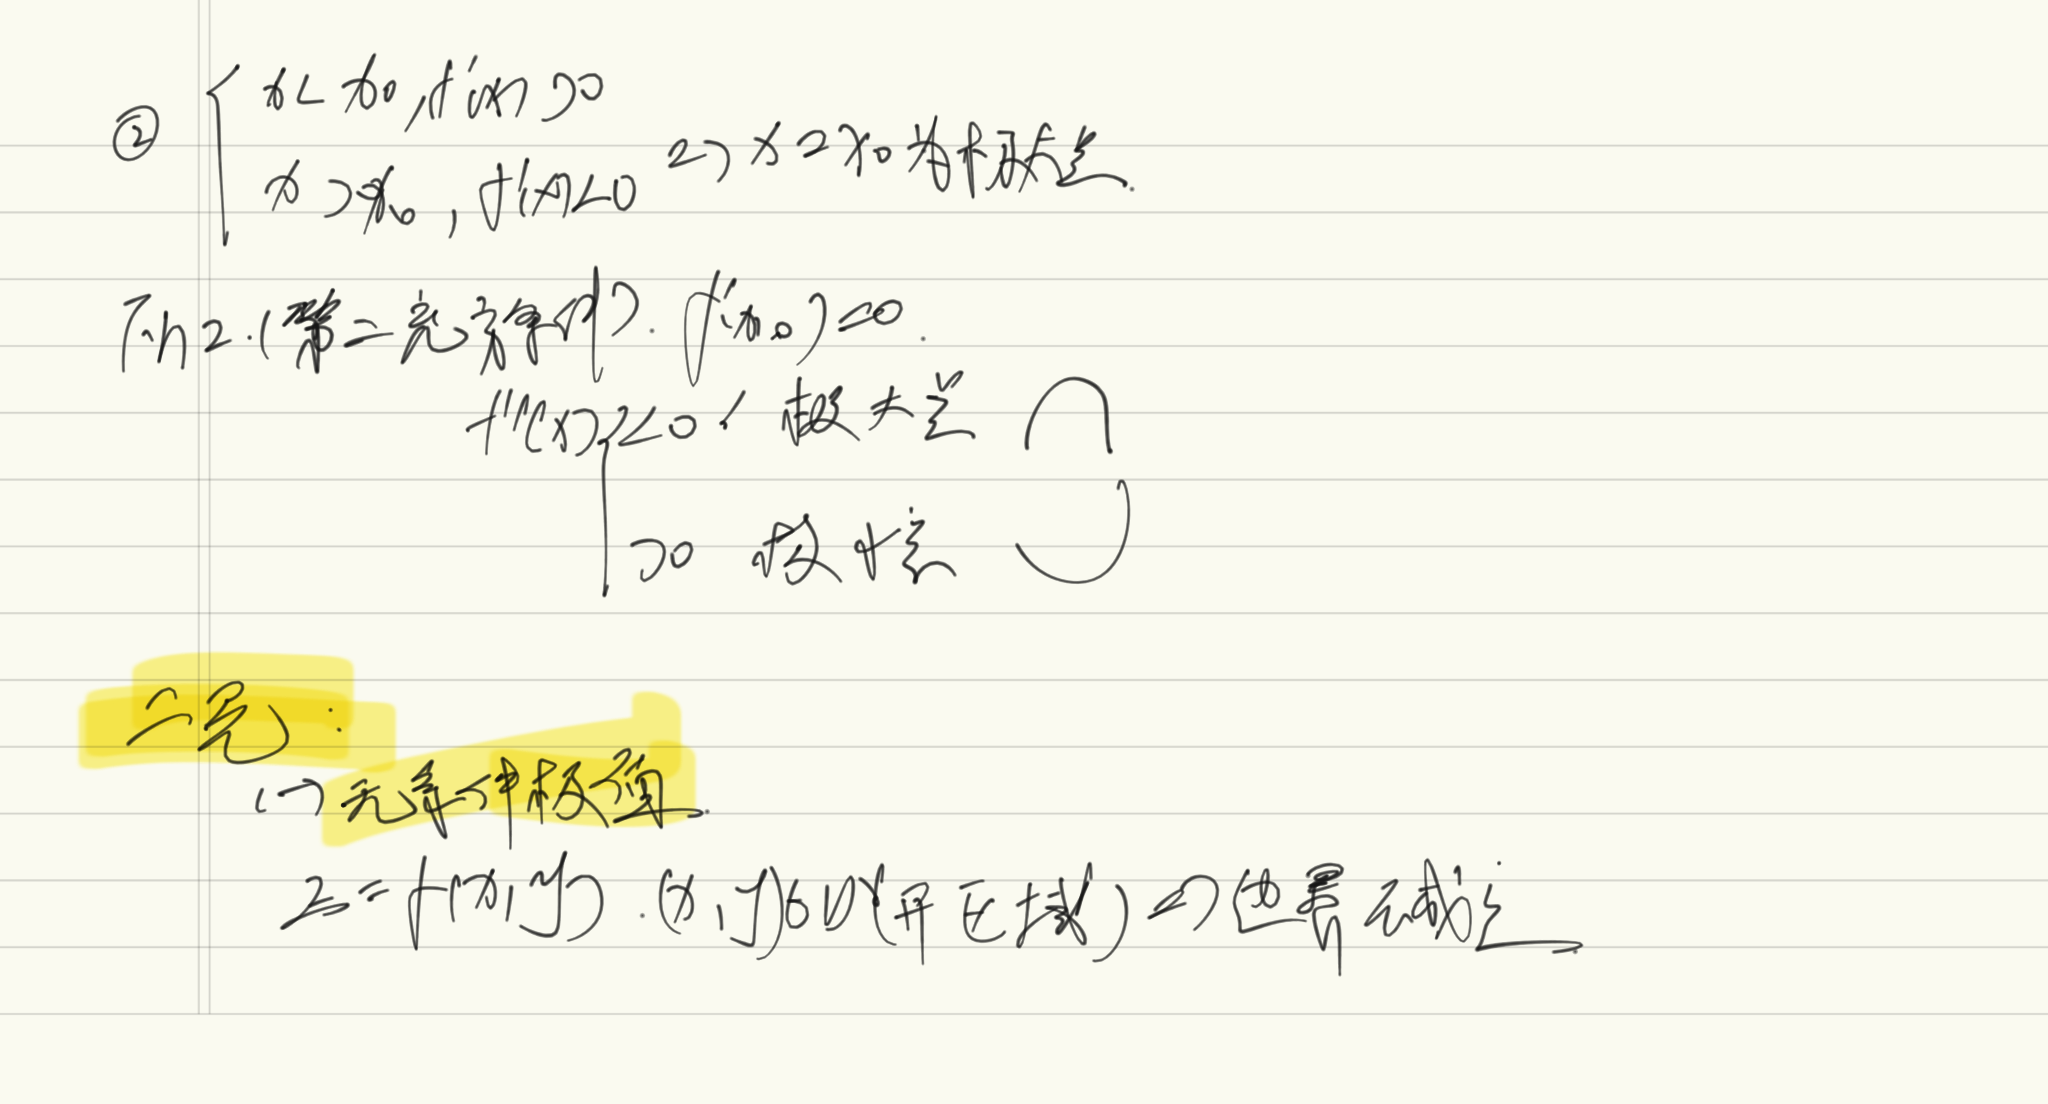 ② { x<x₀, f'(x)>0
x>x₀, f'(x)<0 => x=x₀为极大点.
Th2.(第二充分条件). f'(x₀)=0.
f''(x) { <0, 极大点
>0 极小点
二元:
(一)无条件极值.
z=f(x,y).(x,y)∈D(开区域)<=>(边界无成立